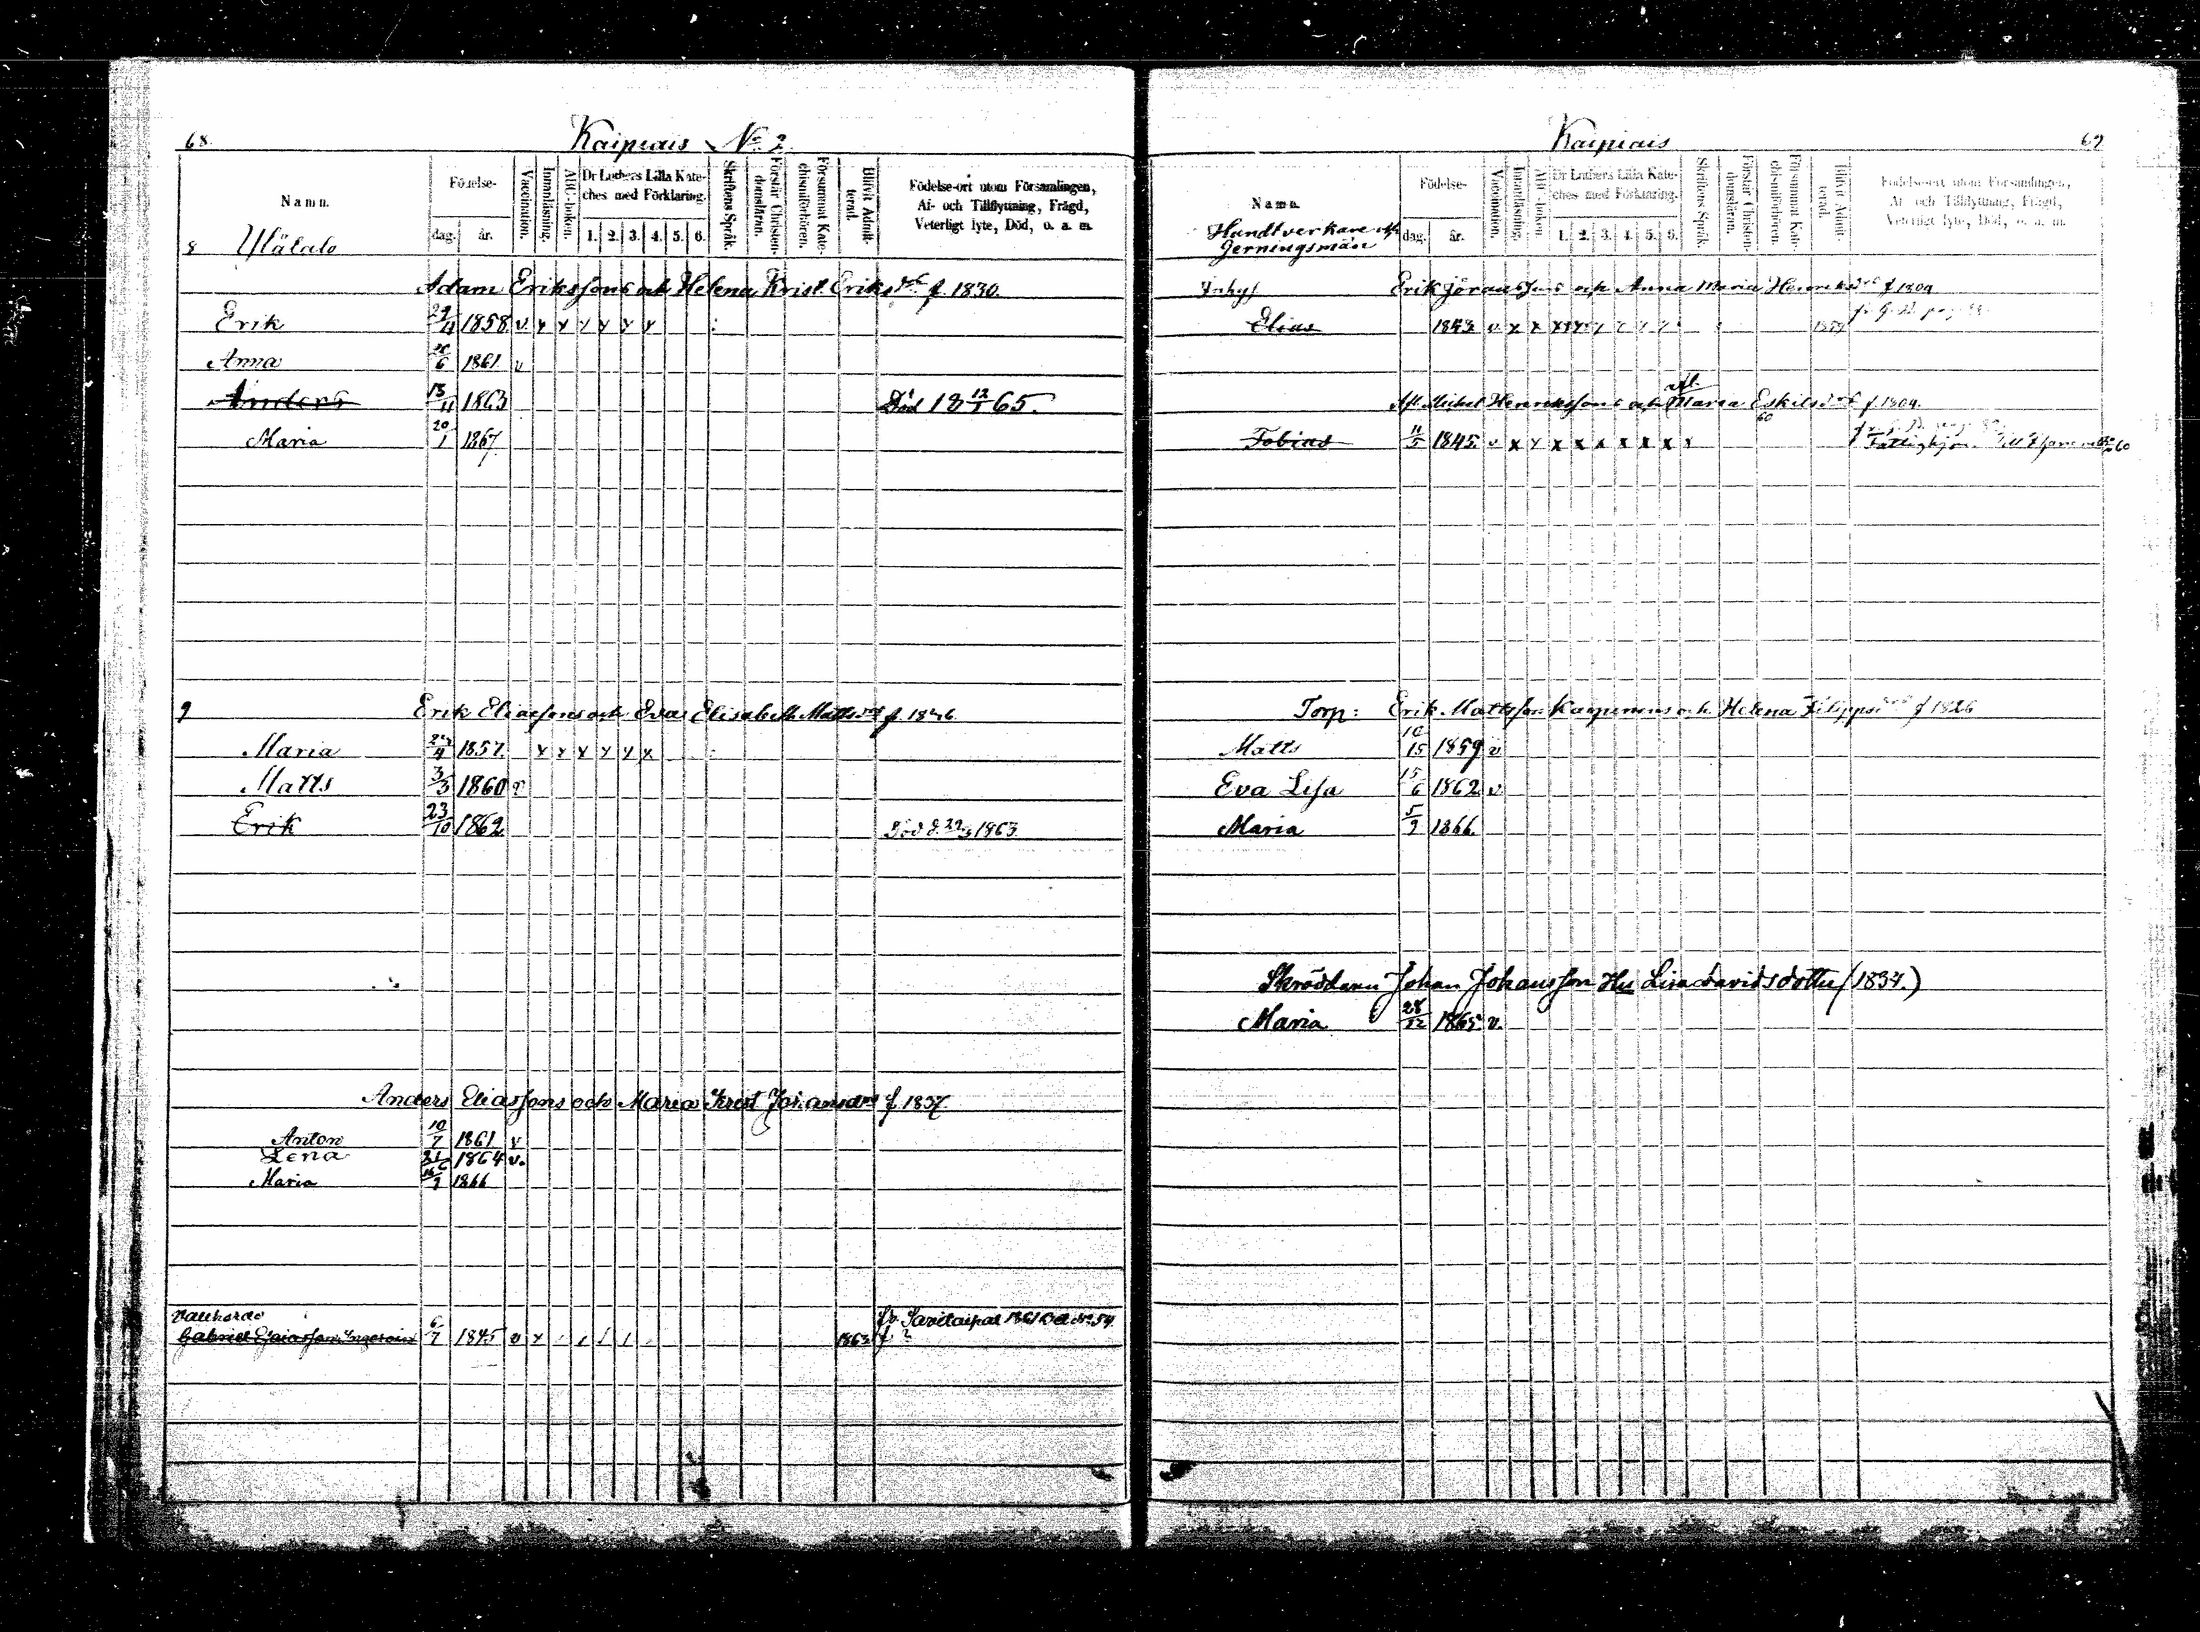 68.
Kaipiais No 2
Namn.
Födelse-
dag.
år.
Vaccination.
Innanläsning.
ABC-boken.
Dr Luthers Lilla Kate-
ches med Förklaring.
1. 2. 3. 4. 5. 6.
Skriftens Språk.
Förstår Christen-
domsläran.
Försummat Kate-
chismiförhören.
Blifvit Admit-
terad.
Födelse-ort utom Församlingen,
Af- och Tillflyttning, Frägd,
Veterligt lyte, Död, o. a. m.
8 Ylätalo
Adam Erikssons och Helena Krist. Eriksdr f. 1830.
Erik 29/11 1858 v x x x x x x
Anna 6 1861 v
Anders 13/11 1863 Död 18 12/1 65.
Maria 20/1 1867
9 Erik Eliassons och Eva Elisabeth Mattsdr f. 1836
Maria 1857 x x x x x x
Matts 3/3 1860 v
Erik 23/10 1862 Död d. 1863
Anders Eliassons och Maria Krist Johansdr f. 1837.
Anton 10/7 1861 v
Lena 1864 v.
Maria 1866
Gabriel Esaiasson 6/7 1845 v x 1863
fr. Savitaipal 1861
Kaipiais
69
Namn.
Handtverkare och
Gerningsmän
Födelse-
dag.
år.
Vaccination.
Innanläsning.
ABC-boken.
Dr Luthers Lilla Kate-
ches med Förklaring.
1. 2. 3. 4. 5. 6.
Skriftens Språk.
Förstår Christen-
domsläran.
Försummat Kate-
chismiförhören.
Blifvit Admit-
terad.
Födelse-ort utom Församlingen,
Af- och Tillflyttning, Frägd,
Veterligt lyte, Död, o. a. m.
Inhys Erik Göranssons och Anna Maria Henriksdr f. 1809
Elias 1843 v x x
Afl. Michel Henrikssons och afl. Maria Eskilsdr f. 1804.
Tobias 11/5 1845. v x x x x x x x x
Torp: Erik Mattsson och Helena Filippsdr f 1826
Matts 1859 v
Eva Lisa 15/6 1862 v
Maria 5/9 1866.
Skräddaren Johan Johansson Hu Lisa Davidsdotter (1834.)
Maria 28/12 1865 v.